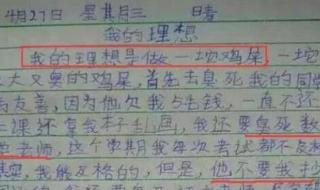 4月27日 星其月三 晴
我的理想
我的理想是做一坨鸡屎,一坨
大又臭的鸡屎,首先去臭死我的同
友善,因为他欠我5毛钱,一直不还
课还拿我本子乱画,我还要臭死数
老师,这个学期我每次考试都不及
其实,我能及格的,但是,他不要我抄